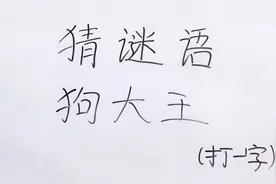 猜谜语
狗大王
(打一字)